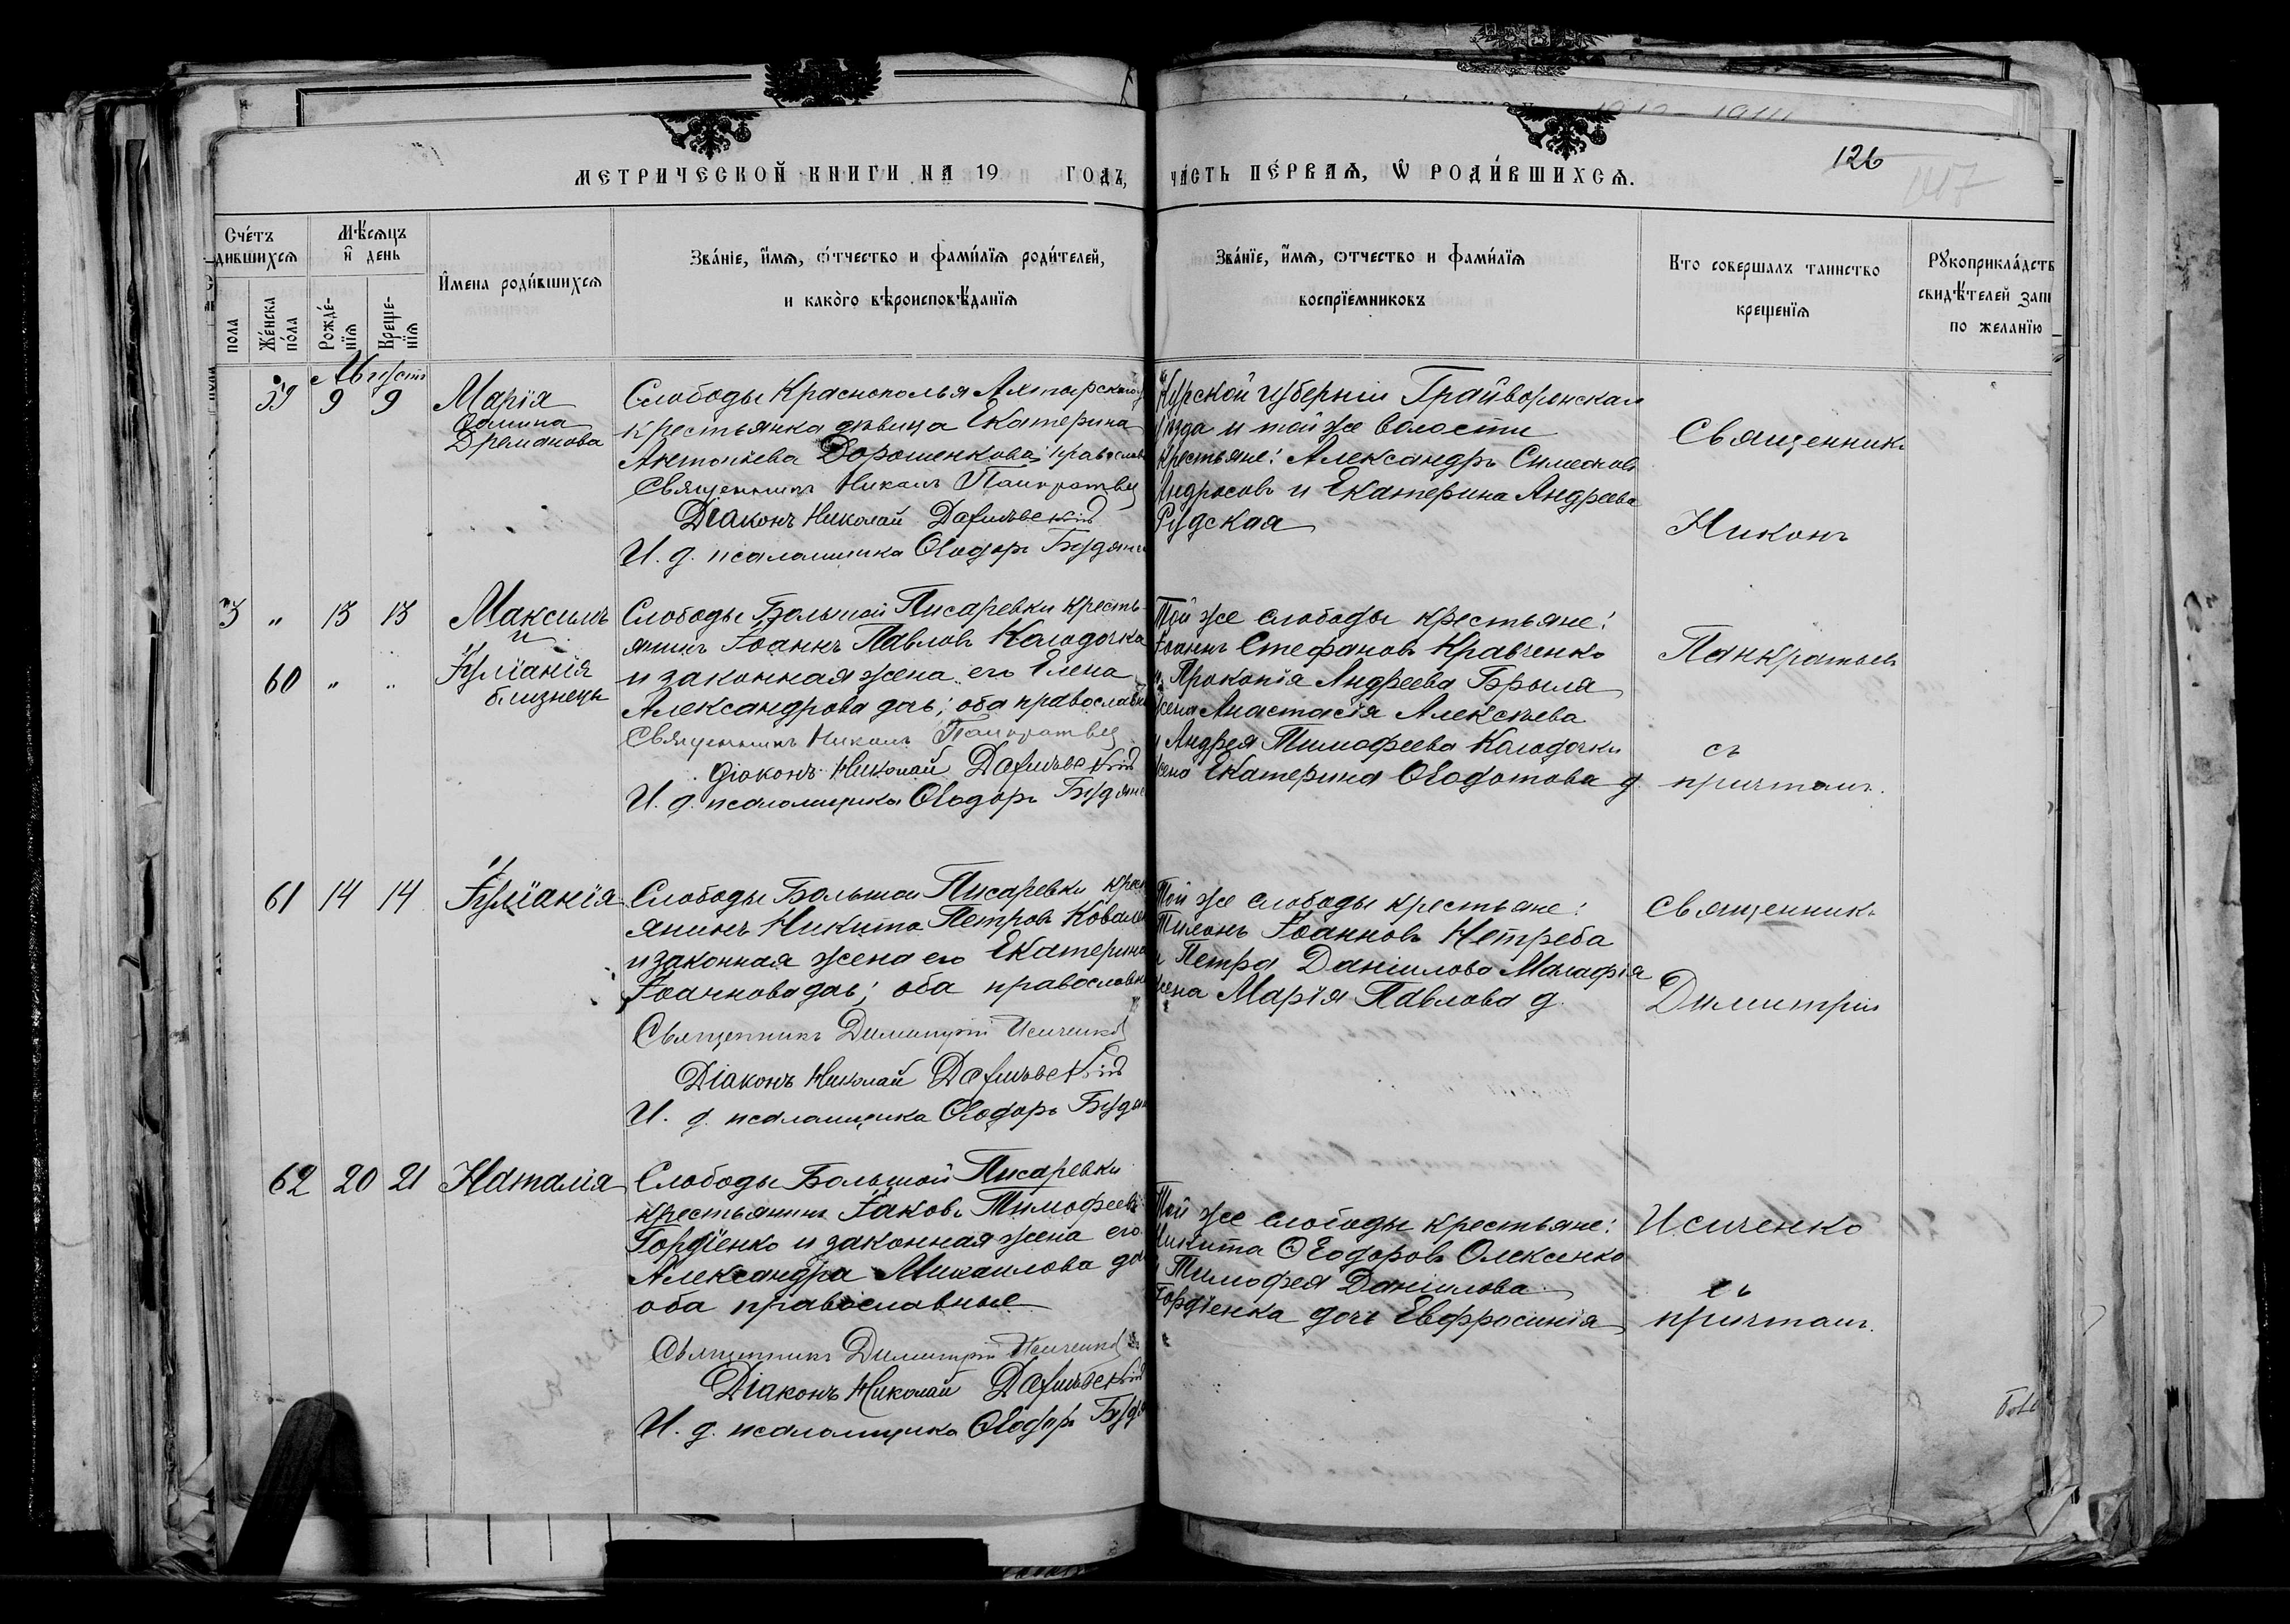 126
117
МЕТРИЧЕСКОЙ КНИГИ НА 19 ГОДЪ,
ЧА́СТЬ ПЕ́РВАѦ, Ѡ҆ РОДИ́ВШИХСѦ.
Сче́тъ
дившихсѧ
Мѣ́сѧцъ
и҆ день
И҆мена роди́вшихсѧ
Зва́нїе, и҆́мѧ, ѻ҆́тчество и фами́лїѧ роди́телей,
и како́го вѣроисповѣ́данїѧ
Зва́нїе, и҆́мѧ, ѻтчество и Фами́лїѧ
воспрїемниковъ
Кто совершалъ таинство
крещенїѧ
Рꙋкоприкла́дств
свидѣ́телей запи
по желанїю
пола
Же́нска
по́ла
Рожде́-
нїѧ
Креще-
нїѧ
Августъ
59 9 9
Марія
Дреманова
Слободы Краснополья Ахтырскаго у
крестьянка дѣвица Екатерина
Антонiева Дорошенкова; православ
Священникъ Никонъ Панкратьев
Діаконъ Николай
И. д. псаломщика Ѳеодоръ Будян
Курской губерніи Грайворонскаго
уѣзда и той же волости
крестьяне: Александръ Симеонов
Андросовъ и Екатерина Андреева
Рудская
Священникъ
Никонъ
3 " 13 13
60 " "
Максимъ
и
Іуліанія
близнецы
Слободы Большой Писаревки кресть-
янинъ Іоаннъ Павловъ Колодочка
и законная жена его Елена
Александрова дочь; оба православн
Священникъ Никонъ Панкратьев
Діаконъ Николай
И. д. псаломщика Ѳеодоръ Будянс
Той же слободы крестьяне:
Іоаннъ Стефановъ Кравченко
и Прокопія Андреева Брыля
жена Анастасія Алексѣева
и Андрея Тимофеева Колодочки
жена Екатерина Ѳеодотова д.
Панкратьевъ
съ
причтомъ.
61 14 14
Іуліанія
Слободы Большой Писаревки крест
янинъ Никита Петровъ Ковале
и законная жена его Екатерина
Іоаннова дочь; оба православн
Священникъ Димитрій Исиченко
Діаконъ Николай
И. д. псаломщика Ѳеодоръ Будян
Той же слободы крестьяне:
Іоанновъ Нетреба
и Петра Даніилова Малафія
жена Марія Павлова д.
Священникъ
Димитрій
62 20 21
Наталія
Слободы Большой Писаревки
крестьянинъ Іаковъ Тимофеевъ
Гордіенко и законная жена его
Александра Михаилова доч
оба православные
Священникъ Димитрій Исиченко
Діаконъ Николай
И. д. псаломщика Ѳеодоръ Будя
Той же слободы крестьяне:
Никита Ѳеодоровъ Олексенко
и Тимофея Даніилова
Гордіенка дочь Евфросинія
Исиченко
съ
причтомъ.